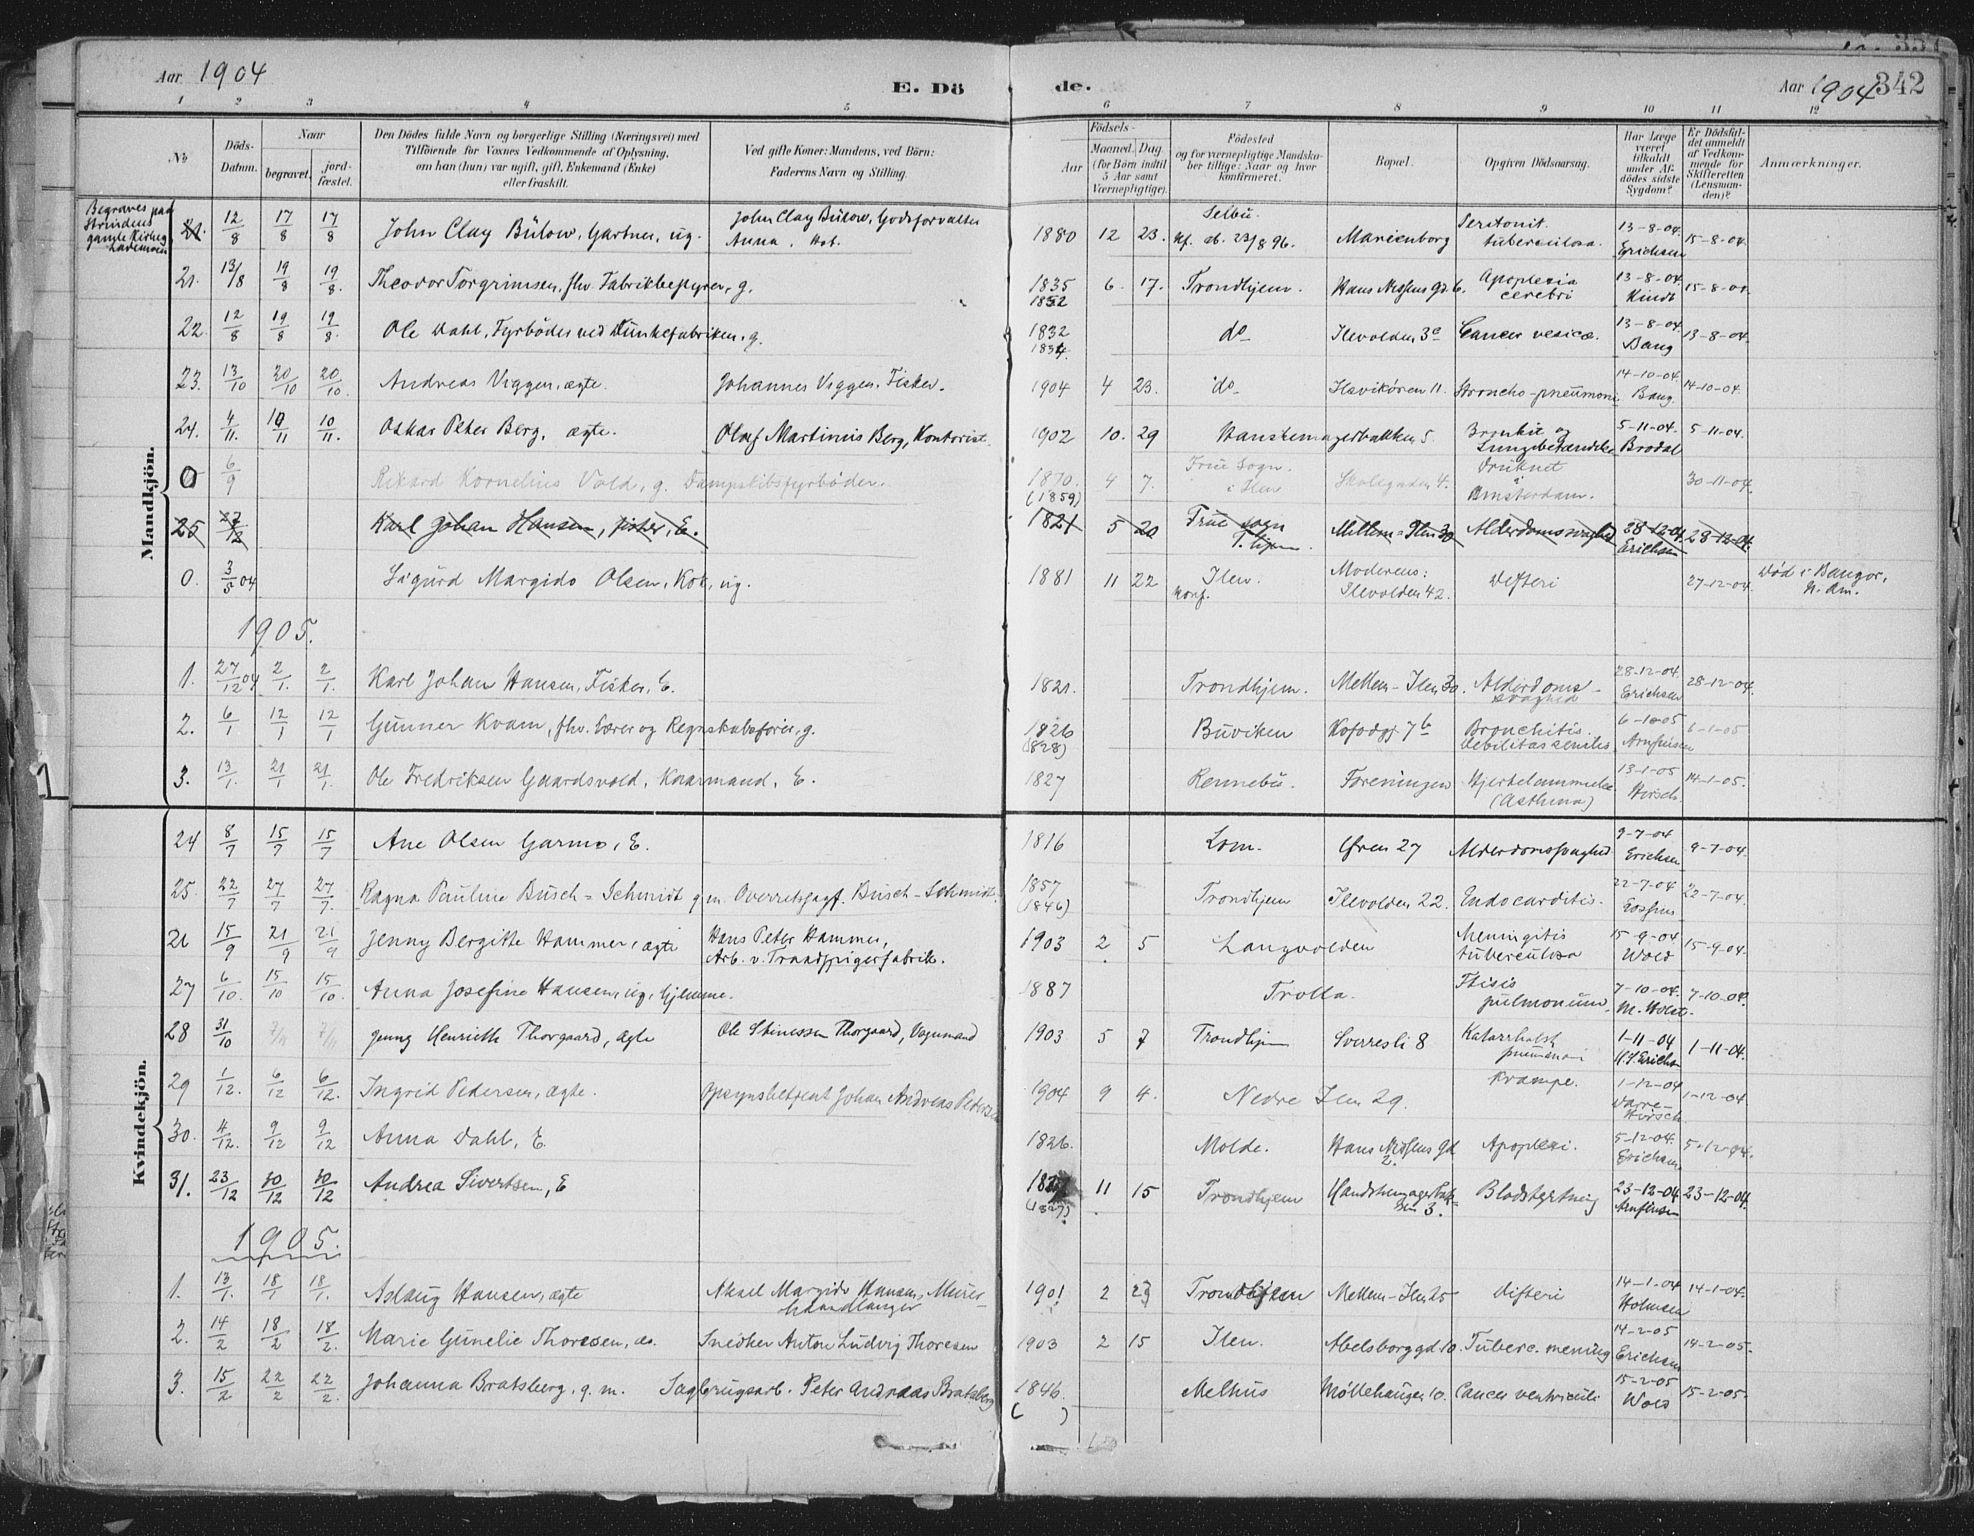 Aar 1904
E. Dö de.
Aar 1904 342
1 2 3 4 5 6 7 8 9 10 11 12
No
Döds-Datum.
Naar
begravet.
jord-fæstet.
Den Dödes fulde Navn og borgerlige Stilling (Næringsvei) med
Tilföiende for Voxnes Vedkommende af Oplysning,
om han (hun) var ugift, gift, Enkemand (Enke)
eller fraskilt.
Ved gifte Koner: Mandens, ved Börn:
Faderens Navn og Stilling.
Födsels-
Aar
Maaned. Dag
(for Börn indtil
5 Aar samt
Værnepligtige).
Födested
og for værnepligtige Mandska-
ber tillige: Naar og hvor
konfirmeret.
Bopæl.
Opgiven Dödsaarsag.
Har Læge
været
tilkaldt
under Af-
dödes sidste
Sygdom?
Er Dödsfal-
det anmeldt
af Vedkom-
mende for
Skifteretten
(Lensman-
den)?
Anmærkninger.
Mandkjön.
Begraves paa
Strindens
gamle Kirkeg.
12/8 17/8 17/8 John Clay Bülow, Gartner, ug. John Clay Bülow, Godsforvalter Anna 1880 12 23. Selbu. 23/8 96. Marienborg Peritonit. tuberculosa. 13-8-04. Erichsen 15-8-04.
21. 13/8 19/8 19/8. Theodor Torgrimsen, fhv. Fabrikbestyrer, g. 1835 1852 6. 17. Trondhjem. Hans Nissens gd. 6. Apoplexia cerebri 13-8-04. Kindt 15-8-04
22. 12/8 19/8 19/8. Ole Dahl, Fyrböder ved Dunkefabriken, g. 1832 1834. do Ilevolden 3c Cancer vesicæ. 13-8-04. Bang 13-8-04.
23. 13/10 20/10 20/10. Andreas Viggen, ægte. Johannes Viggen, Fisker. 1904 4 23. do Ilsvikören 11. Broncho-pneumoni 14-10-04. Bang. 14-10-04.
24. 4/11. 10/11 10/11. Oskar Peter Berg, ægte. Oluf Martinius Berg, Kontorist. 1902 10. 29 Hanskemagerbakken 5. Bronkit og Lungebetændelse 5-11-04. Brodal 5-11-04.
0 6/9 Rikard Kornelius Vold, g. Dampskibsfyrböder. 1870. (1859) 4 7. Frue Sogn. i Ilen Skolegaden 4. Druknet i Amsterdam. 30-11-04.
25 27/12 Karl Johan Hansen, fisker, E. 1821 5 20 Frue sogn T.hjem. Mellem-Ilen 30 Alderdomssvaghed 28-12-04 Erichsen 28-12-04.
0. 3/5 04 Sigurd Margido Olsen, Kok, ug. 1881 11 22 Ilen. konf. Moderens: Ilevolden 42. Difteri 27-12-04. Död i Bangor, N. Am.
1905.
1. 27/12 04 2/1. 2/1. Karl Johan Hansen, Fisker, E. 1821. Trondhjem. Mellem-Ilen 30. Alderdoms-svaghed 28-12-04. Erichsen 28-12-04.
2. 6/1 12/1 12/1 Gunner Kvam, fhv. Lærer og Regnskabsförer, g. 1826 (1828) Buviken Kofodgj. 7b Bronchitis. debilitas senilis 6-1-05 Arnfinsen 6-1-05
3. 13/1. 21/1 21/1. Ole Fredriksen Gaardsvold, Kaarmand, E. 1827 Rennebu. Foreningen Hjertelammelse (Asthma) 13-1-05 Hirsch. 14-1-05.
Kvindekjön.
24 8/7 15/7 15/7 Ane Olsen Garmo, E. 1816 Lom. Ören 27 Alderdomssvaghed 9-7-04 Erichsen 9-7-04.
25. 22/7 27/7 27/7. Ragna Pauline Busch-Schmidt g m. Overretssagf. Busch-Schmidt. 1857 (1846) Trondhjem Ilevolden 22. Endocarditis. 22-7-04 22-7-04.
15/9 21/9 21/9 Jenny Bergitte Hammer, ægte Hans Peter Hammer, Arb. v. Traadspigerfabrik. 1903 2 5 Langvolden Meningitis tuberculosa 15-9-04. Wold 15-9-04.
27 6/10. 15/10 15/10. Anna Josefine Hansen, ug. hjemme. 1887 Trolla. Ftisis pulmonum. 7-10-04. 7-10-04.
28 31/10 7/11 7/11 Jenny Henriette Thorgaard, ægte Ole Stinessen Thorgaard, Vognmand 1903 5 7 Trondhjem Sverresli 8 Katarrhalsk pneumoni 1-11-04 Erichsen 1-11-04.
29 1/12. 6/12 6/12. Ingrid Pedersen, ægte. Opsynsbetjent Johan Andreas Pedersen 1904 9 4. Nedre Ilen 29. Krampe. 1-12-04 Darre-Hirsch 1-12-04.
30. 4/12. 9/12 9/12 Anna Dahl, E. 1826. Molde. Hans Nissens gd 2. Apoplexi. 5-12-04. Erichsen 5-12-04.
31. 23/12 30/12 30/12 Andrea Sivertsen, E (1827) 11 15 Trondhjem Handskemagerbakken 3. Blodstyrtning 23-12-04 Arnfinsen 23-12-04.
1905.
1. 13/1. 18/1 18/1. Aslaug Hansen, ægte Aksel Margido Hansen, Murer-haandlanger 1901 2 23 Trondhjem Mellem-Ilen 25 Difteri 14-1-04 Holmsen 14-1-04.
2. 14/2 18/2 18/2. Marie Gunelie Thoresen, do. Snedker Anton Ludvig Thoresen 1903 2 15 Ilen. Abelsborggd 10. Tuberc. mening 14-2-05 Erichsen 14-2-05.
3. 15/2 22/2 22/2. Johanna Bratsberg, g. m. Sagbrugsarb. Peter Andreas Bratsberg 1846. ( ) Melhus Möllehaugen 10. Cancer ventriculi 15-2-05 Wold 15-2-05.